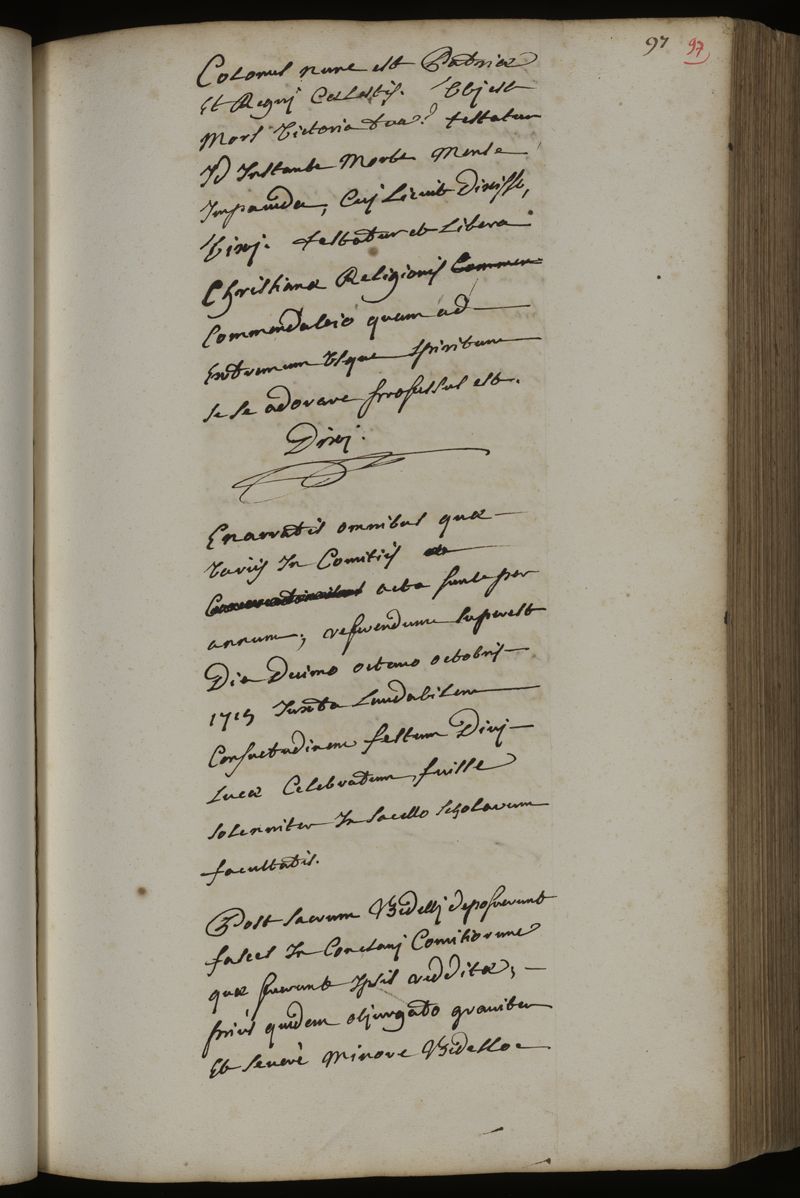 97 97
Colonus nunc est Patriæ
Et Regnj Cœlestis. Vbj est
Mors Victoria tua? testatur
Id Instante Morte Mense
Impavida, Cuj Licuit Dixisse,
Vixj. testatur et Libera
Christianæ Religionis Commen
Commendatio quam ad
Extremum Vsque Spiritum
se se adorare professus est.
Dixj.
Enarratis omnibus quæ
Variis In Comitiis
acta sunt per
annum, referendum superest
Die Decimo octavo octobris
1715 Juxta Laudabilem
Consuetudinem festum Divj
Lucæ Celebratum fuisse
solenniter In sacello scholarum
facultatis.
Post sacrum Bidellj deposuerunt
fasces In Conclavj Comitiorum
quæ fuerunt Ipsis redditæ,
priùs quidem objurgato graviter
Et severè Minore Bidello